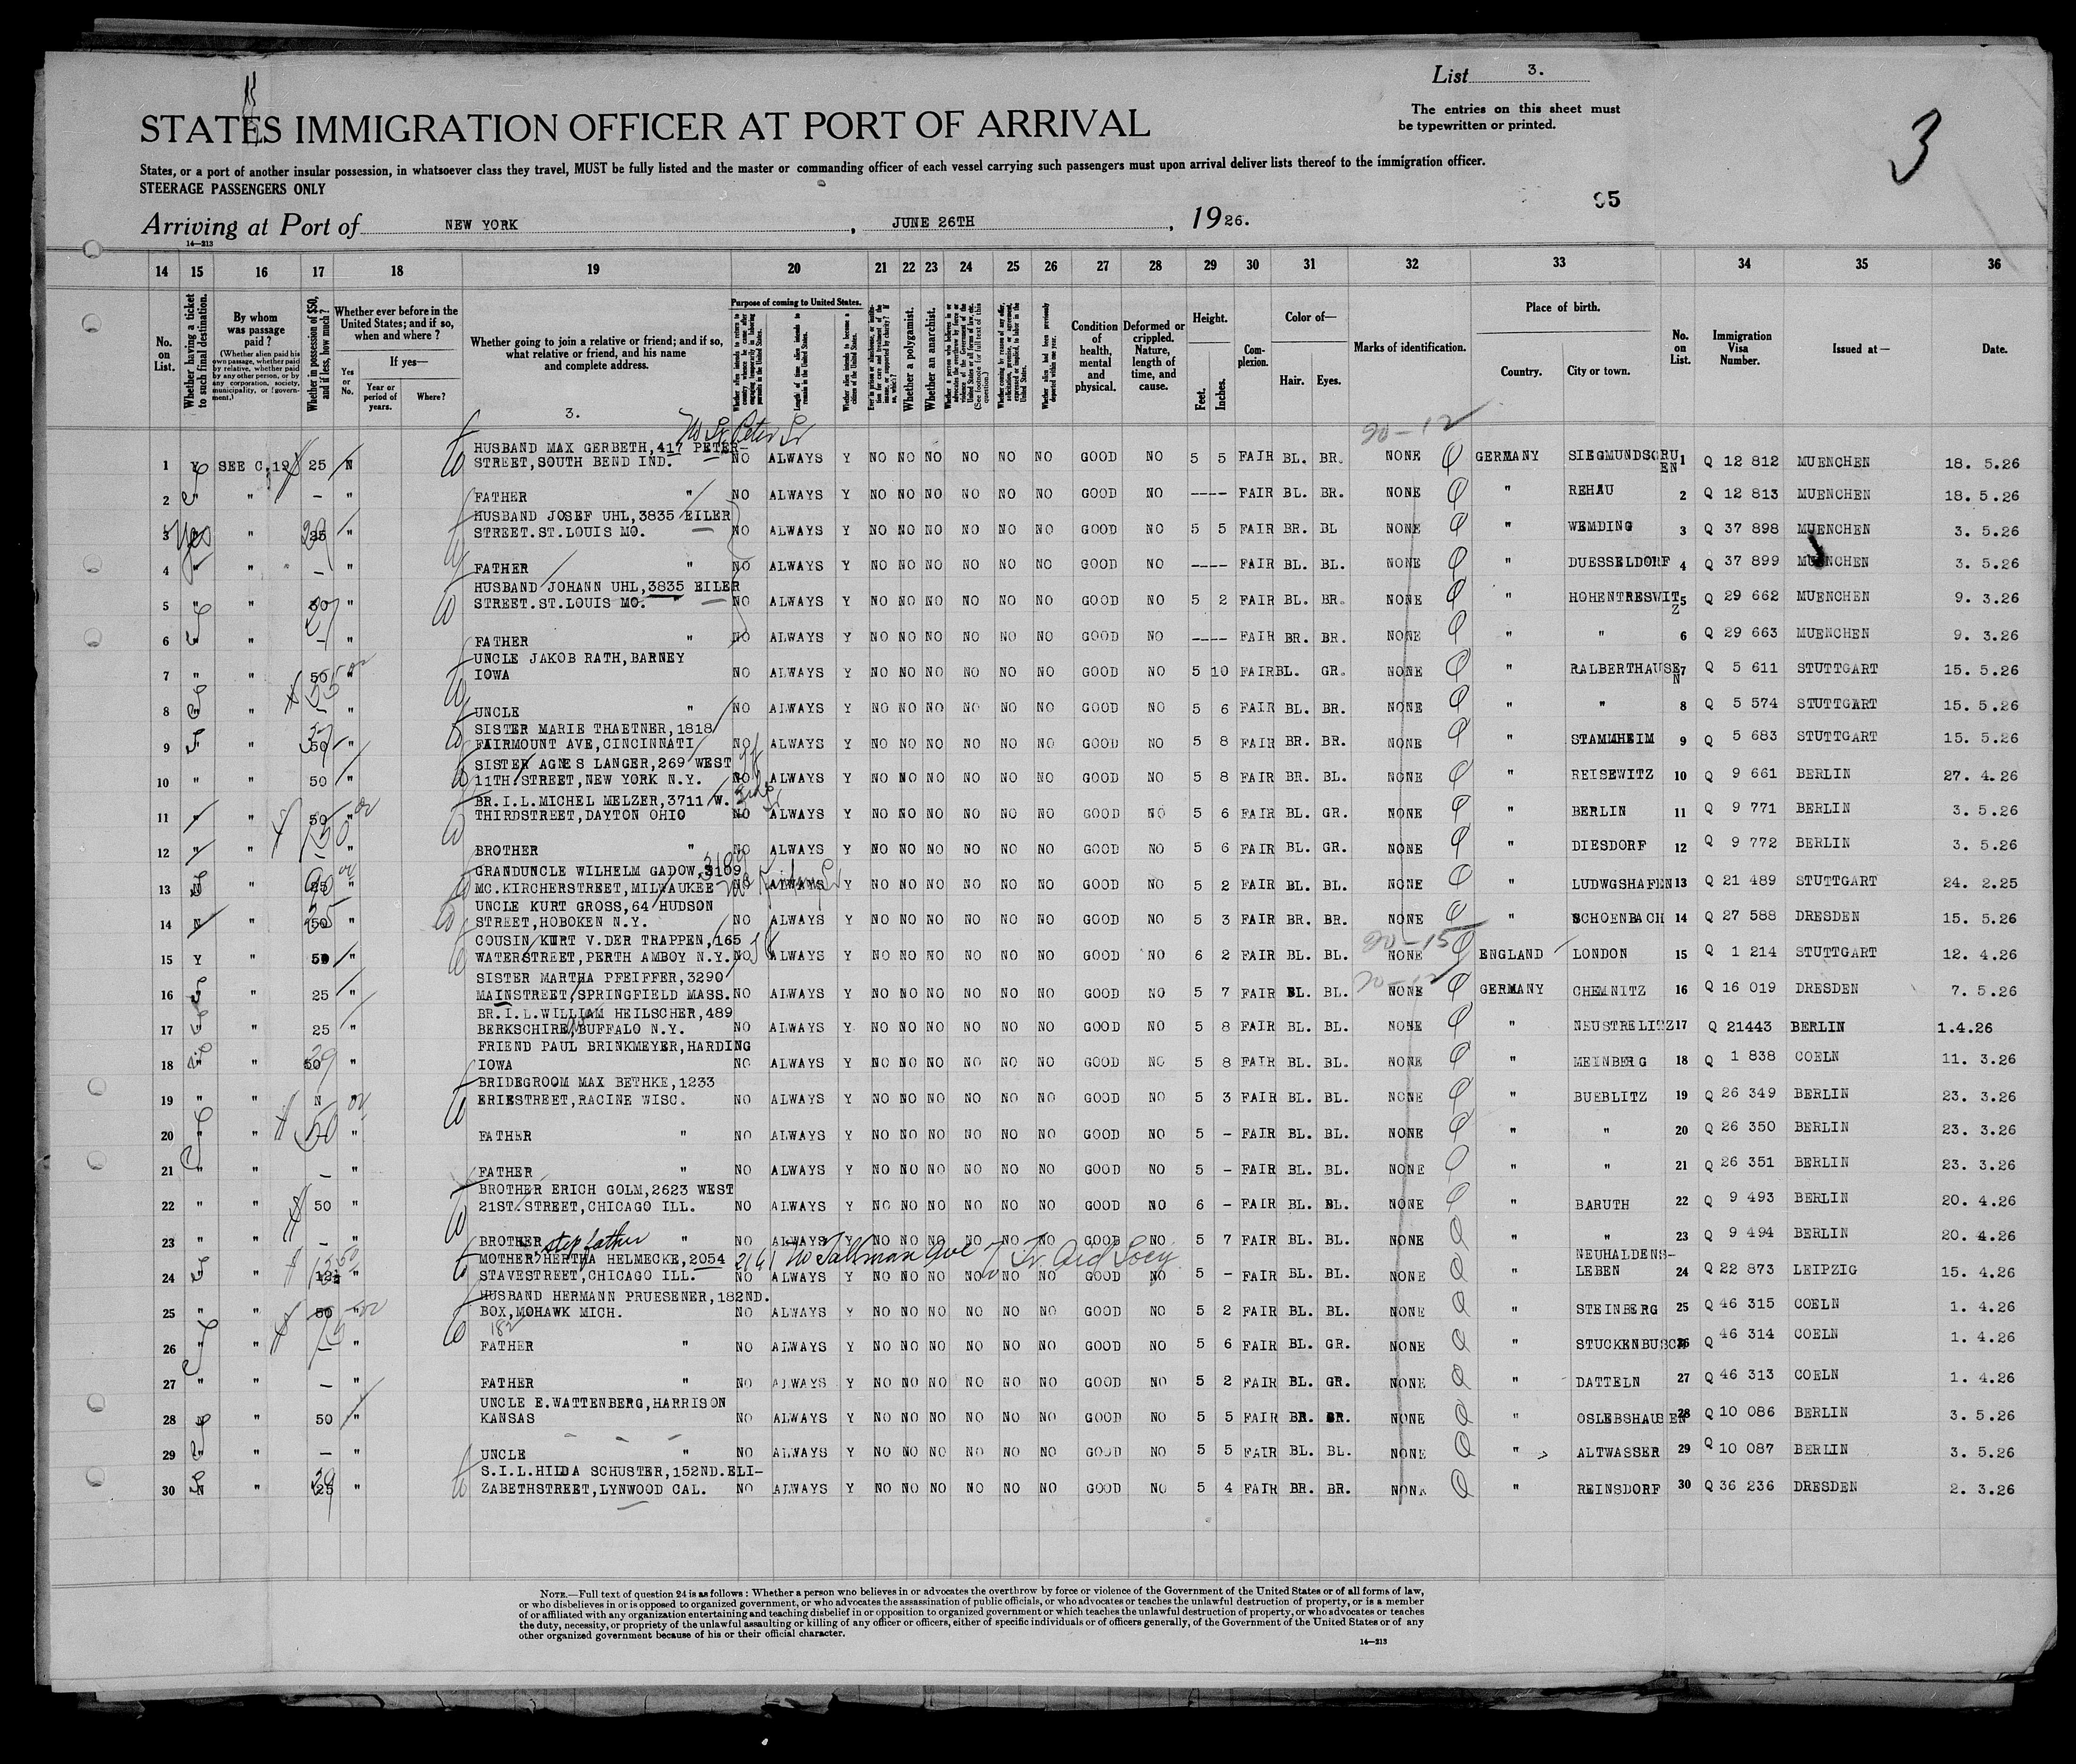 List 3.
The entries on this sheet must
be typewritten or printed.
3
STATES IMMIGRATION OFFICER AT PORT OF ARRIVAL
States, or a port of another insular possession, in whatsoever class they travel, MUST be fully listed and the master or commanding officer of each vessel carrying such passengers must upon arrival deliver lists thereof to the immigration officer.
STEERAGE PASSENGERS ONLY
95
Arriving at Port of NEW YORK, JUNE 26TH, 1926.
14—213
14 15 16 17 18 19 20 21 22 23 24 25 26 27 28 29 30 31 32 33 34 35 36
No. on List.
Whether having a ticket to such final destination.
By whom was passage paid?
(Whether alien paid his own passage, whether paid by relative, whether paid by any other person, or by any corporation, society, municipality, or government.)
Whether in possession of $50, and if less, how much?
Whether ever before in the United States; and if so, when and where?
Yes or No.
If yes—
Year or period of years.
Where?
Whether going to join a relative or friend; and if so, what relative or friend, and his name and complete address.
3.
Purpose of coming to United States.
Length of time alien intends to remain in the United States.
Whether alien intends to become a citizen of the United States.
Whether a polygamist.
Whether an anarchist.
Condition of health, mental and physical.
Deformed or crippled. Nature, length of time, and cause.
Height.
Feet.
Inches.
Complexion.
Color of—
Hair.
Eyes.
Marks of identification.
Place of birth.
Country.
City or town.
No. on List.
Immigration Visa Number.
Issued at—
Date.
20-12
1 Y SEE C.19 25 N HUSBAND MAX GERBETH, 417 PETER-
STREET, SOUTH BEND IND. NO ALWAYS Y NO NO NO NO NO NO GOOD NO 5 5 FAIR BL. BR. NONE GERMANY SIEGMUNDSGRUEN 1 Q 12 812 MUENCHEN 18. 5.26
2 " " — " FATHER " NO ALWAYS Y NO NO NO NO NO NO GOOD NO ---- FAIR BL. BR. NONE " REHAU 2 Q 12 813 MUENCHEN 18.5.26
3 Yes " 25 " HUSBAND JOSEF UHL, 3835 EILER
STREET. ST. LOUIS MO. NO ALWAYS Y NO NO NO NO NO NO GOOD NO 5 5 FAIR BR. BL NONE " WEMDING 3 Q 37 898 MUENCHEN 3. 5.26
4 " " — " FATHER " NO ALWAYS Y NO NO NO NO NO NO GOOD NO ---- FAIR BL. BL. NONE " DUESSELDORF 4 Q 37 899 MUENCHEN 3. 5.26
5 " " 30 " HUSBAND JOHANN UHL, 3835 EILER
STREET. ST. LOUIS MO. NO ALWAYS Y NO NO NO NO NO NO GOOD NO 5 2 FAIR BL. BR. NONE " HOHENTRESWITZ 5 Q 29 662 MUENCHEN 9. 3.26
6 " " — " FATHER " NO ALWAYS Y NO NO NO NO NO NO GOOD NO ---- FAIR BR. BR. NONE " " 6 Q 29 663 MUENCHEN 9. 3.26
7 " " 50 " UNCLE JAKOB RATH, BARNEY
IOWA NO ALWAYS Y NO NO NO NO NO NO GOOD NO 5 10 FAIR BL. GR. NONE " RALBERTHAUSEN 7 Q 5 611 STUTTGART 15. 5.26
8 " " — " UNCLE " NO ALWAYS Y NO NO NO NO NO NO GOOD NO 5 6 FAIR BL. BR. NONE " " 8 Q 5 574 STUTTGART 15. 5.26
9 " " 50 " SISTER MARIE THAETNER, 1818
FAIRMOUNT AVE, CINCINNATI NO ALWAYS Y NO NO NO NO NO NO GOOD NO 5 8 FAIR BR. BR. NONE " STAMMHEIM 9 Q 5 683 STUTTGART 15. 5.26
10 " " 50 " SISTER AGNES LANGER, 269 WEST
11TH STREET, NEW YORK N.Y. NO ALWAYS Y NO NO NO NO NO NO GOOD NO 5 8 FAIR BR. BL. NONE " REISEWITZ 10 Q 9 661 BERLIN 27. 4.26
11 " " 50 " BR.I.L. MICHEL MELZER, 3711 W.
THIRDSTREET, DAYTON OHIO NO ALWAYS Y NO NO NO NO NO NO GOOD NO 5 6 FAIR BL. GR. NONE " BERLIN 11 Q 9 771 BERLIN 3. 5.26
12 " " — " BROTHER " NO ALWAYS Y NO NO NO NO NO NO GOOD NO 5 6 FAIR BL. GR. NONE " DIESDORF 12 Q 9 772 BERLIN 3. 5.26
13 N " 25 " GRANDUNCLE WILHELM GADOW, 3109
MC.KIRCHERSTREET, MILWAUKEE NO ALWAYS Y NO NO NO NO NO NO GOOD NO 5 2 FAIR BL. BL. NONE " LUDWGSHAFEN 13 Q 21 489 STUTTGART 24. 2.25
14 N " 50 " UNCLE KURT GROSS, 64 HUDSON
STREET, HOBOKEN N.Y. NO ALWAYS Y NO NO NO NO NO NO GOOD NO 5 3 FAIR BR. BR. NONE " SCHOENBACH 14 Q 27 588 DRESDEN 15. 5.26
20-15
15 Y " 50 " COUSIN KURT V.DER TRAPPEN, 165
WATERSTREET, PERTH AMBOY N.Y. NO ALWAYS Y NO NO NO NO NO NO GOOD NO 6 2 FAIR BL. BL. NONE ENGLAND LONDON 15 Q 1 214 STUTTGART 12. 4.26
20-12
16 " " 25 " SISTER MARTHA PFEIFFER, 3290
MAINSTREET, SPRINGFIELD MASS. NO ALWAYS Y NO NO NO NO NO NO GOOD NO 5 7 FAIR BL. BL. NONE GERMANY CHEMNITZ 16 Q 16 019 DRESDEN 7. 5.26
17 " " 25 " BR.I.L. WILLIAM HEILSCHER, 489
BERKSHIRE, BUFFALO N.Y. NO ALWAYS Y NO NO NO NO NO NO GOOD NO 5 8 FAIR BL. BL. NONE " NEUSTRELITZ 17 Q 21443 BERLIN 1.4.26
18 " " 50 " FRIEND PAUL BRINKMEYER, HARDING
IOWA NO ALWAYS Y NO NO NO NO NO NO GOOD NO 5 8 FAIR BL. BL. NONE " MEINBERG 18 Q 1 838 COELN 11. 3.26
19 " " N " BRIDEGROOM MAX BETHKE, 1233
ERIESTREET, RACINE WISC. NO ALWAYS Y NO NO NO NO NO NO GOOD NO 5 3 FAIR BL. BL. NONE " BUEBLITZ 19 Q 26 349 BERLIN 23. 3.26
20 " " 50 " FATHER " NO ALWAYS Y NO NO NO NO NO NO GOOD NO 5 - FAIR BL. BL. NONE " " 20 Q 26 350 BERLIN 23. 3.26
21 " " — " FATHER " NO ALWAYS Y NO NO NO NO NO NO GOOD NO 5 - FAIR BL. BL. NONE " " 21 Q 26 351 BERLIN 23. 3.26
22 " " 50 " BROTHER ERICH GOLM, 2623 WEST
21ST. STREET, CHICAGO ILL. NO ALWAYS Y NO NO NO NO NO NO GOOD NO 6 - FAIR BL. BL. NONE " BARUTH 22 Q 9 493 BERLIN 20. 4.26
23 " " — " BROTHER " NO ALWAYS Y NO NO NO NO NO NO GOOD NO 5 7 FAIR BL. BL. NONE " " 23 Q 9 494 BERLIN 20. 4.26
step father
24 " " 12½ " MOTHER HERTHA HELMECKE, 2054 2161 No Tallman Ave
STAVESTREET, CHICAGO ILL. NO ALWAYS Y NO NO NO NO NO NO GOOD NO 5 - FAIR BL. BL. NONE " NEUHALDENS-
LEBEN 24 Q 22 873 LEIPZIG 15. 4.26
25 " " 50 " HUSBAND HERMANN PRUESENER, 182ND.
BOX, MOHAWK MICH. NO ALWAYS Y NO NO NO NO NO NO GOOD NO 5 2 FAIR BL. BL. NONE " STEINBERG 25 Q 46 315 COELN 1. 4.26
182
26 " " — " FATHER " NO ALWAYS Y NO NO NO NO NO NO GOOD NO 5 6 FAIR BL. GR. NONE " STUCKENBUSCH 26 Q 46 314 COELN 1. 4.26
27 " " — " FATHER " NO ALWAYS Y NO NO NO NO NO NO GOOD NO 5 2 FAIR BL. GR. NONE " DATTELN 27 Q 46 313 COELN 1. 4.26
28 N " 50 " UNCLE E.WATTENBERG, HARRISON
KANSAS NO ALWAYS Y NO NO NO NO NO NO GOOD NO 5 5 FAIR BR. BR. NONE " OSLEBSHAUSEN 28 Q 10 086 BERLIN 3. 5.26
29 " " — " UNCLE " NO ALWAYS Y NO NO NO NO NO NO GOOD NO 5 5 FAIR BL. BL. NONE " ALTWASSER 29 Q 10 087 BERLIN 3. 5.26
30 N " 25 " S.I.L. HILDA SCHUSTER, 152ND. ELI-
ZABETHSTREET, LYNWOOD CAL. NO ALWAYS Y NO NO NO NO NO NO GOOD NO 5 4 FAIR BR. BR. NONE " REINSDORF 30 Q 36 236 DRESDEN 2. 3.26
NOTE.—Full text of question 24 is as follows: Whether a person who believes in or advocates the overthrow by force or violence of the Government of the United States or of all forms of law,
or who disbelieves in or is opposed to organized government, or who advocates the assassination of public officials, or who advocates or teaches the unlawful destruction of property, or is a member
of or affiliated with any organization entertaining and teaching disbelief in or opposition to organized government or which teaches the unlawful destruction of property, or who advocates or teaches
the duty, necessity, or propriety of the unlawful assaulting or killing of any officer or officers, either of specific individuals or of officers generally, of the Government of the United States or of any
other organized government because of his or their official character.
14—213